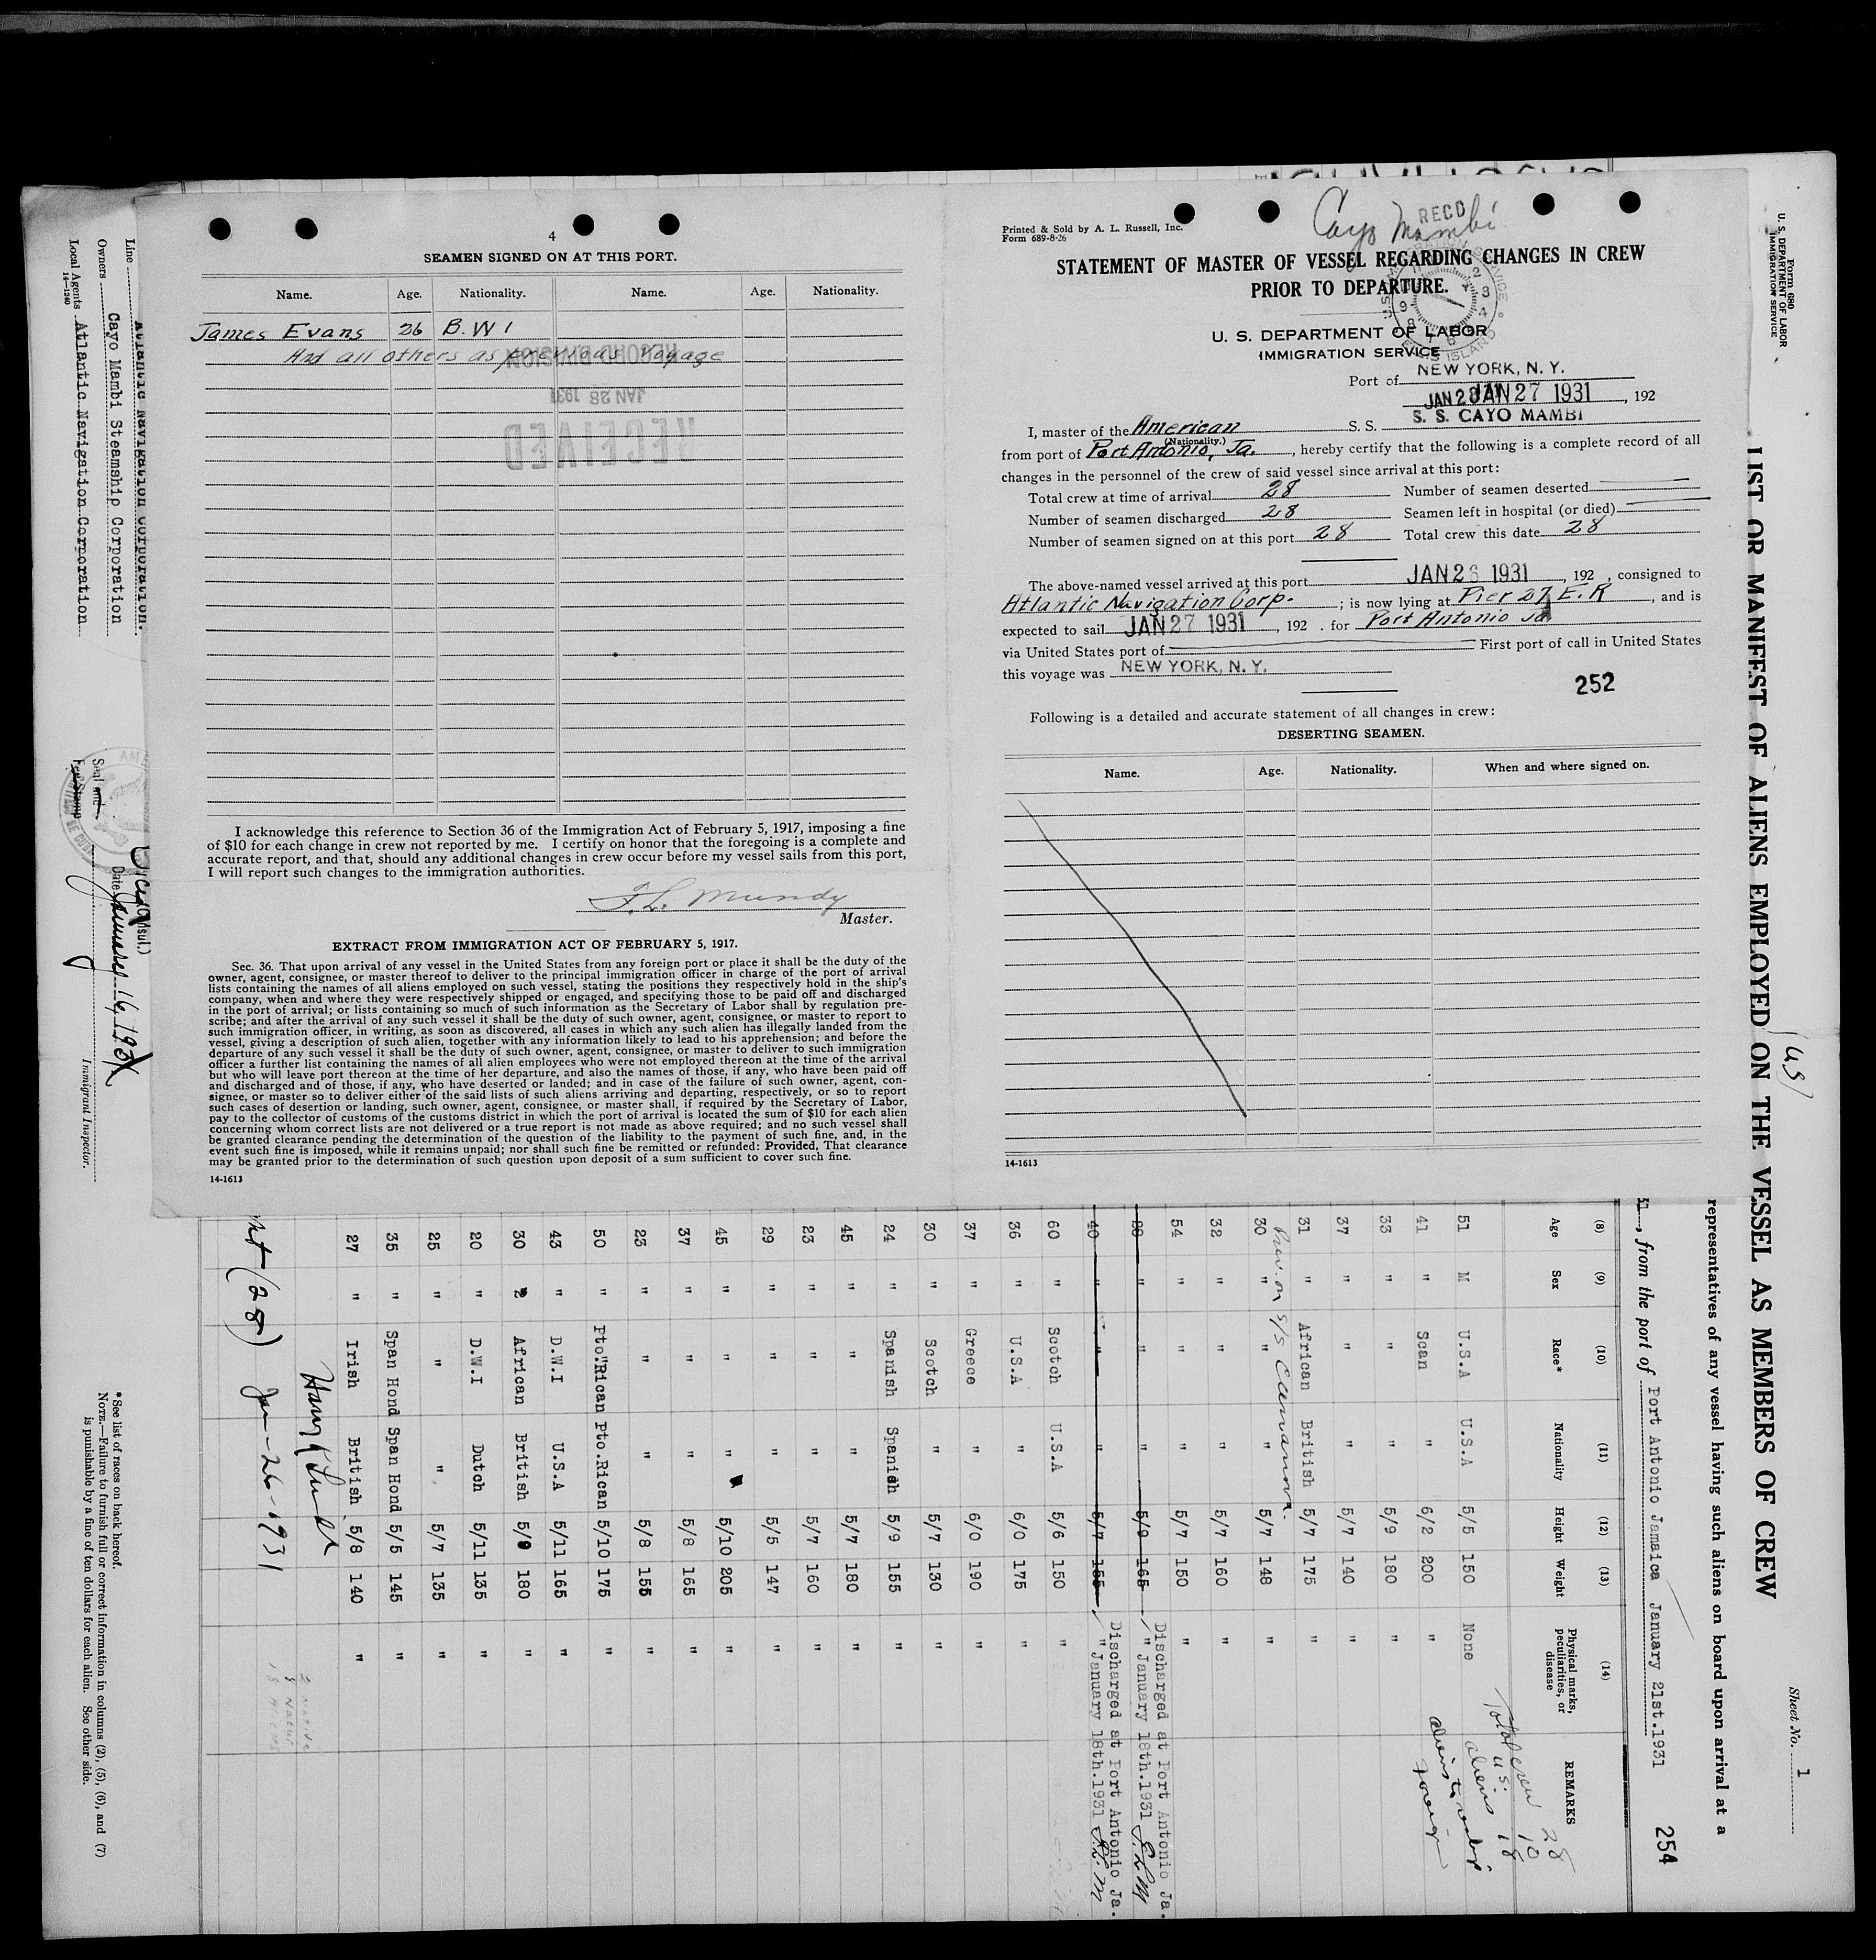 4
SEAMEN SIGNED ON AT THIS PORT.
Name. Age. Nationality. Name. Age. Nationality.
James Evans 26 B.W I
And all others as previous voyage
RECORD DIVISION
JAN 28 1931
RECEIVED
I acknowledge this reference to Section 36 of the Immigration Act of February 5, 1917, imposing a fine
of $10 for each change in crew not reported by me. I certify on honor that the foregoing is a complete and
accurate report, and that, should any additional changes in crew occur before my vessel sails from this port,
I will report such changes to the immigration authorities.
F.L. Mundy
Master.
EXTRACT FROM IMMIGRATION ACT OF FEBRUARY 5, 1917.
Sec. 36. That upon arrival of any vessel in the United States from any foreign port or place it shall be the duty of the
owner, agent, consignee, or master thereof to deliver to the principal immigration officer in charge of the port of arrival
lists containing the names of all aliens employed on such vessel, stating the positions they respectively hold in the ship's
company, when and where they were respectively shipped or engaged, and specifying those to be paid off and discharged
in the port of arrival; or lists containing so much of such information as the Secretary of Labor shall by regulation pre-
scribe; and after the arrival of any such vessel it shall be the duty of such owner, agent, consignee, or master to report to
such immigration officer, in writing, as soon as discovered, all cases in which any such alien has illegally landed from the
vessel, giving a description of such alien, together with any information likely to lead to his apprehension; and before the
departure of any such vessel it shall be the duty of such owner, agent, consignee, or master to deliver to such immigration
officer a further list containing the names of all alien employees who were not employed thereon at the time of the arrival
but who will leave port thereon at the time of her departure, and also the names of those, if any, who have been paid off
and discharged and of those, if any, who have deserted or landed; and in case of the failure of such owner, agent, con-
signee, or master so to deliver either of the said lists of such aliens arriving and departing, respectively, or so to report
such cases of desertion or landing, such owner, agent, consignee, or master shall, if required by the Secretary of Labor,
pay to the collector of customs of the customs district in which the port of arrival is located the sum of $10 for each alien
concerning whom correct lists are not delivered or a true report is not made as above required; and no such vessel shall
be granted clearance pending the determination of the question of the liability to the payment of such fine, and, in the
event such fine is imposed, while it remains unpaid; nor shall such fine be remitted or refunded: Provided, That clearance
may be granted prior to the determination of such question upon deposit of a sum sufficient to cover such fine.
14-1613
Printed & Sold by A. L. Russell, Inc.
Form 689-8-26
Cayo Mambi
RECD
STATEMENT OF MASTER OF VESSEL REGARDING CHANGES IN CREW
PRIOR TO DEPARTURE.
U. S. DEPARTMENT OF LABOR
IMMIGRATION SERVICE
Port of NEW YORK, N. Y.
JAN 27 1931, 192
I, master of the American S. S. S. S. CAYO MAMBI
(Nationality.)
from port of Port Antonio, Ja., hereby certify that the following is a complete record of all
changes in the personnel of the crew of said vessel since arrival at this port:
Total crew at time of arrival 28 Number of seamen deserted
Number of seamen discharged 28 Seamen left in hospital (or died)
Number of seamen signed on at this port 28 Total crew this date 28
The above-named vessel arrived at this port JAN 26 1931, 192 , consigned to
Atlantic Navigation Corp. ; is now lying at Pier 27 E.R , and is
expected to sail JAN 27 1931, 192 . for Port Antonio Ja
via United States port of First port of call in United States
this voyage was NEW YORK, N. Y.
252
Following is a detailed and accurate statement of all changes in crew:
DESERTING SEAMEN.
Name. Age. Nationality. When and where signed on.
14-1613
Form 680
U. S. DEPARTMENT OF LABOR
IMMIGRATION SERVICE
LIST OR MANIFEST OF ALIENS EMPLOYED ON THE VESSEL AS MEMBERS OF CREW
(US)
Sheet No. 1
representatives of any vessel having such aliens on board upon arrival at a
, from the port of Port Antonio Jamaica January 21st.1931
254
(8) (9) (10) (11) (12) (13) (14)
Age Sex Race* Nationality Height Weight Physical marks, peculiarities, or disease REMARKS
51 M U.S.A U.S.A 5/5 150 None
41 " Scan " 6/2 200 "
33 " " " 5/9 180 "
37 " " " 5/7 140 "
31 " African British 5/7 175 "
30 " " " 5/7 148 "
32 " " " 5/7 160 "
54 " " " 5/7 150 "
" " " 5/9 165 " Discharged at Port Antonio Ja. January 18th.1931 F.L.M
40 " " " 5/7 155 " Discharged at Port Antonio Ja. January 18th.1931 F.L.M
60 " Scotch U.S.A 5/6 150 "
36 " U.S.A " 6/0 175 "
37 " Greece " 6/0 190 "
30 " Scotch " 5/7 130 "
24 " Spanish Spanish 5/9 155 "
45 " " " 5/7 180 "
23 " " " 5/7 160 "
29 " " " 5/5 147 "
45 " " " 5/10 205 "
37 " " " 5/8 165 "
23 " " " 5/8 155 "
50 " Pto.Rican Pto.Rican 5/10 175 "
43 " D.W.I U.S.A 5/11 165 "
30 " African British 5/9 180 "
20 " D.W.I Dutch 5/11 135 "
25 " " " 5/7 135 "
35 " Span Hond Span Hond 5/5 145 "
27 " Irish British 5/8 140 "
Total crew 28
U.S. 10
aliens 18
(28) Jan-26-1931
Line Atlantic Navigation Corporation.
Owners Cayo Mambi Steamship Corporation
Local Agents Atlantic Navigation Corporation
14-1240
Seal and
Fee Stamp
Date January 16, 193
Immigrant Inspector.
*See list of races on back hereof.
NOTE.—Failure to furnish full or correct information in columns (2), (5), (6), and (7)
is punishable by a fine of ten dollars for each alien. See other side.